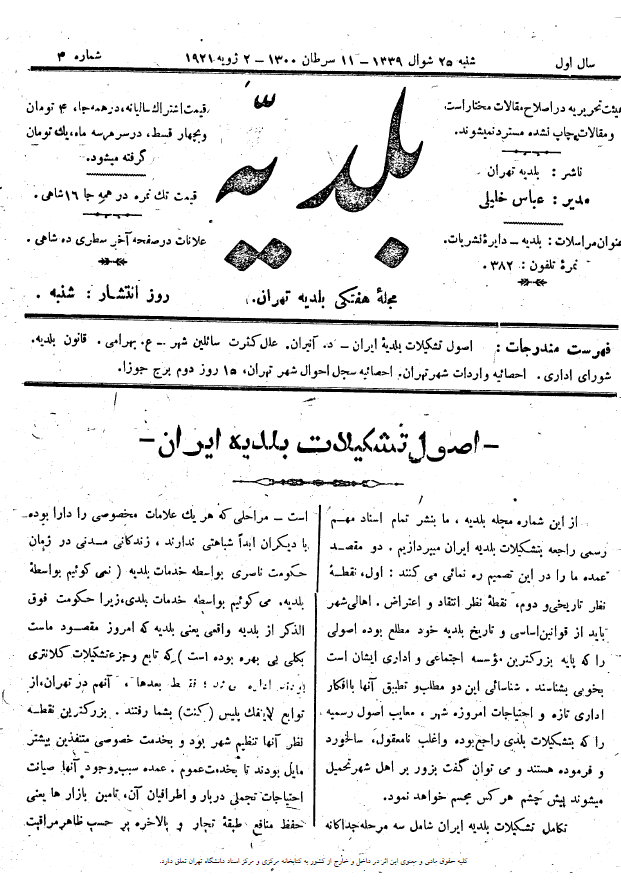 سال اول
شنبه ۲۵ شوال ۱۳۳۹ – ۱۱ سرطان ۱۳۰۰ – ۲ ژویه ۱۹۲۱
شماره ۴
هیئت تحریریه در اصلاح مقالات مختار است
و مقالات چاپ نشده مسترد نمیشوند.
ناشر : بلدیه تهران
مدیر : عباس خلیلی
عنوان مراسلات : بلدیه – دایرۀ نشریات.
نمرۀ تلفون : ۳۸۲.
بلدیّه
مجلۀ هفتگی بلدیه تهران.
قیمت اشتراك سالیانه، در همه جا، ۴ تومان
و بچهار قسط، در سر هر سه ماه، یك تومان
گرفته میشود.
قیمت تك نمره در همه جا ۱۶ شاهی.
علانات در صفحه آخر سطری ده شاهی.
روز انتشار : شنبه .
فهرست مندرجات : اصول تشکیلات بلدیۀ ایران – د. آنیران. علل کثرت سائلین شهر – ع. بهرامی . قانون بلدیه.
شورای اداری . احصائیه واردات شهر تهران. احصائیه سجل احوال شهر تهران، ۱۵ روز دوم برج جوزا.
– اصول تشکیلات بلدیه ایران –
از این شماره مجله بلدیه ، ما بنشر تمام اسناد مهم
رسمی راجعه بتشکیلات بلدیۀ ایران میپردازیم . دو مقصد
عمده ما را در این تصمیم ره نمائی می کنند : اول، نقطۀ
نظر تاریخی و دوم، نقطۀ نظر انتقاد و اعتراض . اهالی شهر
باید از قوانین اساسی و تاریخ بلدیه خود مطلع بوده اصولی
را که پایه بزرگترین مؤسسه اجتماعی و اداری ایشان است
بخوبی بشناسند . شناسائی این دو مطلب و تطبیق آنها با افکار
اداری تازه و احتیاجات امروزه شهر ، معایب اصول رسمیه
را که بتشکیلات بلدی راجع بوده و اغلب نامعقول، سالخورد
و فرموده هستند و می توان گفت بزور بر اهل شهر تحمیل
میشوند پیش چشم هر کس مجسم خواهد نمود.
تکامل تشکیلات بلدیه ایران شامل سه مرحله جداگانه
است – مراحلی که هر یك علامات مخصوصی را دارا بوده
با دیگران ابداً شباهتی ندارند ، زندگانی مدنی در زمان
حکومت ناصری بواسطه خدمات بلدیه ( نمی گوئیم بواسطۀ
بلدیه. می گوئیم بواسطه خدمات بلدی، زیرا حکومت فوق
الذکر از بلدیه واقعی یعنی بلدیه که امروز مقصود ماست
بکلی بی بهره بوده است ) که تابع و جزء تشکیلات کلانتری
بودند اداره می شد ؛ فقط بعدها ، آنهم در تهران، از
توابع لاینفك پلیس (کنت) بشما رفتند . بزرگترین نقطه
نظر آنها تنظیم شهر بود و بخدمت خصوصی متنفذین بیشتر
مایل بودند تا بخدمت عموم . عمده سبب وجود آنها صیانت
احتیاجات تجملی دربار و اطرافیان آن، تامین بازار ها یعنی
حفظ منافع طبقۀ تجار و بالاخره بر حسب ظاهر مراقبت
کلیه حقوق مادی و معنوی این اثر در داخل و خارج از کشور به کتابخانه مرکزی و مرکز اسناد دانشگاه تهران تعلق دارد.